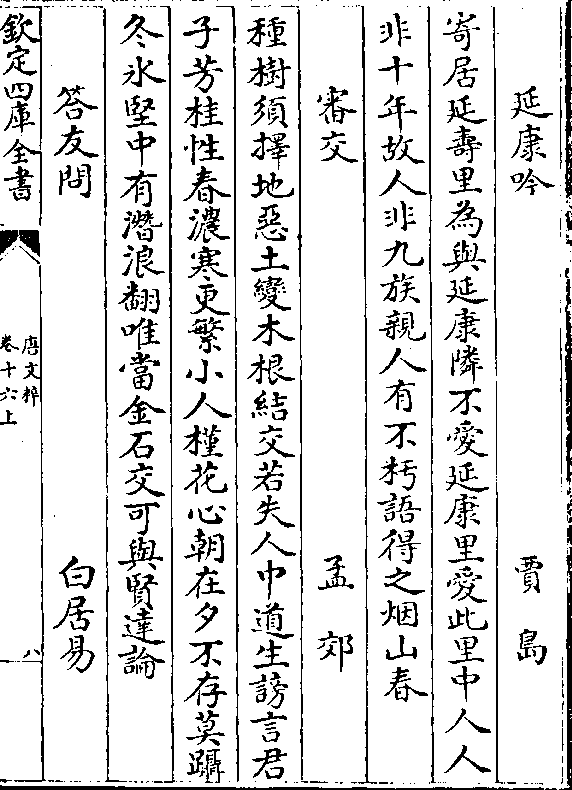 延康吟　賈島
寄居延壽里為與延康隣不愛延康里愛此里中人人
非十年故人非九族親人有不朽語得之烟山春
審交　孟郊
種樹須擇地惡土變木根結交若失人中道生謗言君
子芳桂性春濃寒更繁小人槿花心朝在夕不存莫躡
冬冰堅中有潛浪翻唯當金石交可與賢達論
答友問　白居易
欽定四庫全書
唐文粹
卷十六上
八